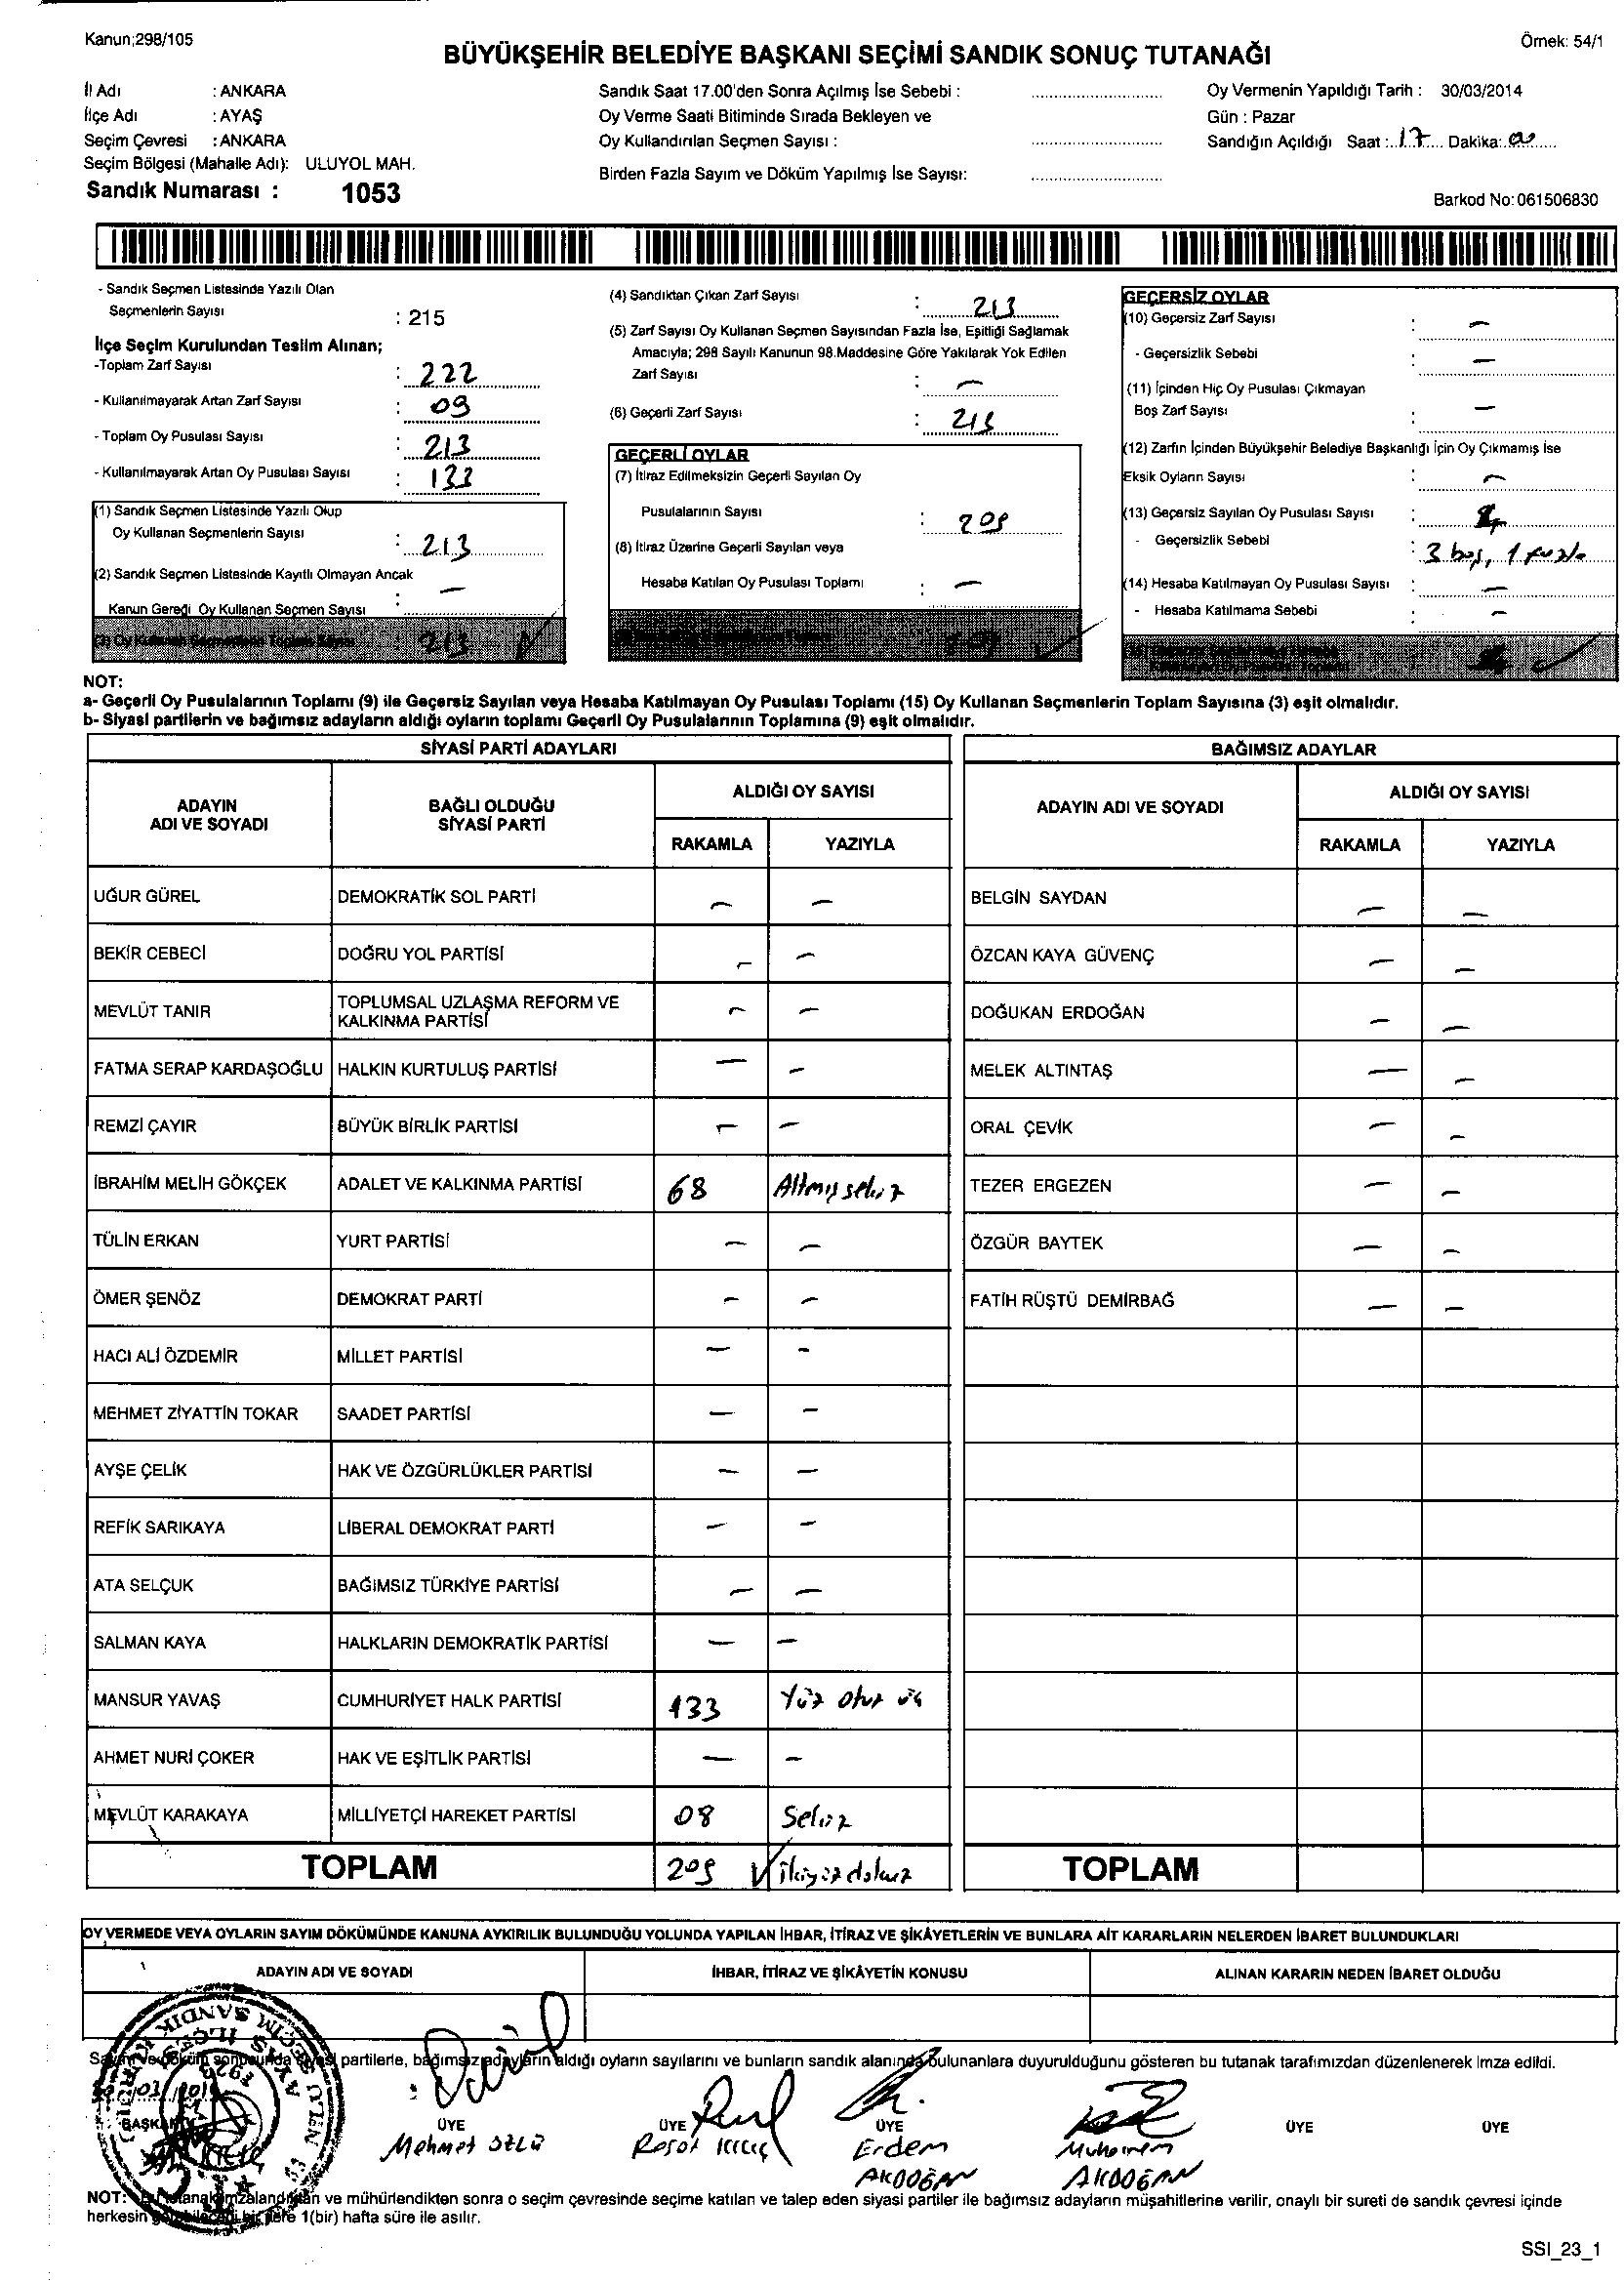 Kanun;298/105
Örnek: 54/1
BÜYÜKŞEHİR BELEDİYE BAŞKANI SEÇİMİ SANDIK SONUÇ TUTANAĞI
İl Adı : ANKARA
İlçe Adı : AYAŞ
Seçim Çevresi : ANKARA
Seçim Bölgesi (Mahalle Adı): ULUYOL MAH.
Sandık Numarası : 1053
Sandık Saat 17.00'den Sonra Açılmış İse Sebebi :
Oy Verme Saati Bitiminde Sırada Bekleyen ve
Oy Kullandırılan Seçmen Sayısı :
Birden Fazla Sayım ve Döküm Yapılmış İse Sayısı:
Oy Vermenin Yapıldığı Tarih : 30/03/2014
Gün : Pazar
Sandığın Açıldığı Saat : 17 Dakika: 00
Barkod No: 061506830
- Sandık Seçmen Listesinde Yazılı Olan
Seçmenlerin Sayısı : 215
İlçe Seçim Kurulundan Teslim Alınan;
-Toplam Zarf Sayısı : 222
- Kullanılmayarak Artan Zarf Sayısı : 09
- Toplam Oy Pusulası Sayısı : 213
- Kullanılmayarak Artan Oy Pusulası Sayısı : 133
(1) Sandık Seçmen Listesinde Yazılı Olup
Oy Kullanan Seçmenlerin Sayısı : 213
(2) Sandık Seçmen Listesinde Kayıtlı Olmayan Ancak
Kanun Gereği Oy Kullanan Seçmen Sayısı : —
(3) Oy Kullanan Seçmenlerin Toplam Sayısı : 213
(4) Sandıktan Çıkan Zarf Sayısı : 213
(5) Zarf Sayısı Oy Kullanan Seçmen Sayısından Fazla İse, Eşitliği Sağlamak
Amacıyla; 298 Sayılı Kanunun 98.Maddesine Göre Yakılarak Yok Edilen
Zarf Sayısı : —
(6) Geçerli Zarf Sayısı : 213
GEÇERLİ OYLAR
(7) İtiraz Edilmeksizin Geçerli Sayılan Oy
Pusulalarının Sayısı : 209
(8) İtiraz Üzerine Geçerli Sayılan veya
Hesaba Katılan Oy Pusulası Toplamı : —
209
GEÇERSİZ OYLAR
(10) Geçersiz Zarf Sayısı : —
- Geçersizlik Sebebi : —
(11) İçinden Hiç Oy Pusulası Çıkmayan
Boş Zarf Sayısı : —
(12) Zarfın İçinden Büyükşehir Belediye Başkanlığı İçin Oy Çıkmamış İse
Eksik Oyların Sayısı : —
(13) Geçersiz Sayılan Oy Pusulası Sayısı : 4
- Geçersizlik Sebebi : 3 boş, 1 fazla
(14) Hesaba Katılmayan Oy Pusulası Sayısı : —
- Hesaba Katılmama Sebebi : —
NOT:
a- Geçerli Oy Pusulalarının Toplamı (9) ile Geçersiz Sayılan veya Hesaba Katılmayan Oy Pusulası Toplamı (15) Oy Kullanan Seçmenlerin Toplam Sayısına (3) eşit olmalıdır.
b- Siyasi partilerin ve bağımsız adayların aldığı oyların toplamı Geçerli Oy Pusulalarının Toplamına (9) eşit olmalıdır.
SİYASİ PARTİ ADAYLARI
ADAYIN ADI VE SOYADI BAĞLI OLDUĞU SİYASİ PARTİ ALDIĞI OY SAYISI
RAKAMLA YAZIYLA
UĞUR GÜREL DEMOKRATİK SOL PARTİ — —
BEKİR CEBECİ DOĞRU YOL PARTİSİ — —
MEVLÜT TANIR TOPLUMSAL UZLAŞMA REFORM VE KALKINMA PARTİSİ — —
FATMA SERAP KARDAŞOĞLU HALKIN KURTULUŞ PARTİSİ — —
REMZİ ÇAYIR BÜYÜK BİRLİK PARTİSİ — —
İBRAHİM MELİH GÖKÇEK ADALET VE KALKINMA PARTİSİ 68 Altmış sekiz
TÜLİN ERKAN YURT PARTİSİ — —
ÖMER ŞENÖZ DEMOKRAT PARTİ — —
HACI ALİ ÖZDEMİR MİLLET PARTİSİ — —
MEHMET ZİYATTİN TOKAR SAADET PARTİSİ — —
AYŞE ÇELİK HAK VE ÖZGÜRLÜKLER PARTİSİ — —
REFİK SARIKAYA LİBERAL DEMOKRAT PARTİ — —
ATA SELÇUK BAĞIMSIZ TÜRKİYE PARTİSİ — —
SALMAN KAYA HALKLARIN DEMOKRATİK PARTİSİ — —
MANSUR YAVAŞ CUMHURİYET HALK PARTİSİ 133 Yüz otuz üç
AHMET NURİ ÇOKER HAK VE EŞİTLİK PARTİSİ — —
MEVLÜT KARAKAYA MİLLİYETÇİ HAREKET PARTİSİ 08 Sekiz
TOPLAM 209 İkiyüz dokuz
BAĞIMSIZ ADAYLAR
ADAYIN ADI VE SOYADI ALDIĞI OY SAYISI
RAKAMLA YAZIYLA
BELGİN SAYDAN — —
ÖZCAN KAYA GÜVENÇ — —
DOĞUKAN ERDOĞAN — —
MELEK ALTINTAŞ — —
ORAL ÇEVİK — —
TEZER ERGEZEN — —
ÖZGÜR BAYTEK — —
FATİH RÜŞTÜ DEMİRBAĞ — —
TOPLAM
OY VERMEDE VEYA OYLARIN SAYIM DÖKÜMÜNDE KANUNA AYKIRILIK BULUNDUĞU YOLUNDA YAPILAN İHBAR, İTİRAZ VE ŞİKÂYETLERİN VE BUNLARA AİT KARARLARIN NELERDEN İBARET BULUNDUKLARI
ADAYIN ADI VE SOYADI İHBAR, İTİRAZ VE ŞİKÂYETİN KONUSU ALINAN KARARIN NEDEN İBARET OLDUĞU
Sayım ve döküm sonucunda siyasi partilerle, bağımsız adayların aldığı oyların sayılarını ve bunların sandık alanında bulunanlara duyurulduğunu gösteren bu tutanak tarafımızdan düzenlenerek imza edildi.
BAŞKAN ÜYE ÜYE ÜYE ÜYE ÜYE
Mehmet ÖZLÜ
Reşat KILIÇ
Erdem AKDOĞAN
Muharrem AKDOĞAN
NOT: Bu tutanak imzalandıktan ve mühürlendikten sonra o seçim çevresinde seçime katılan ve talep eden siyasi partiler ile bağımsız adayların müşahitlerine verilir, onaylı bir sureti de sandık çevresi içinde
herkesin görebileceği bir yere 1(bir) hafta süre ile asılır.
SSI_23_1